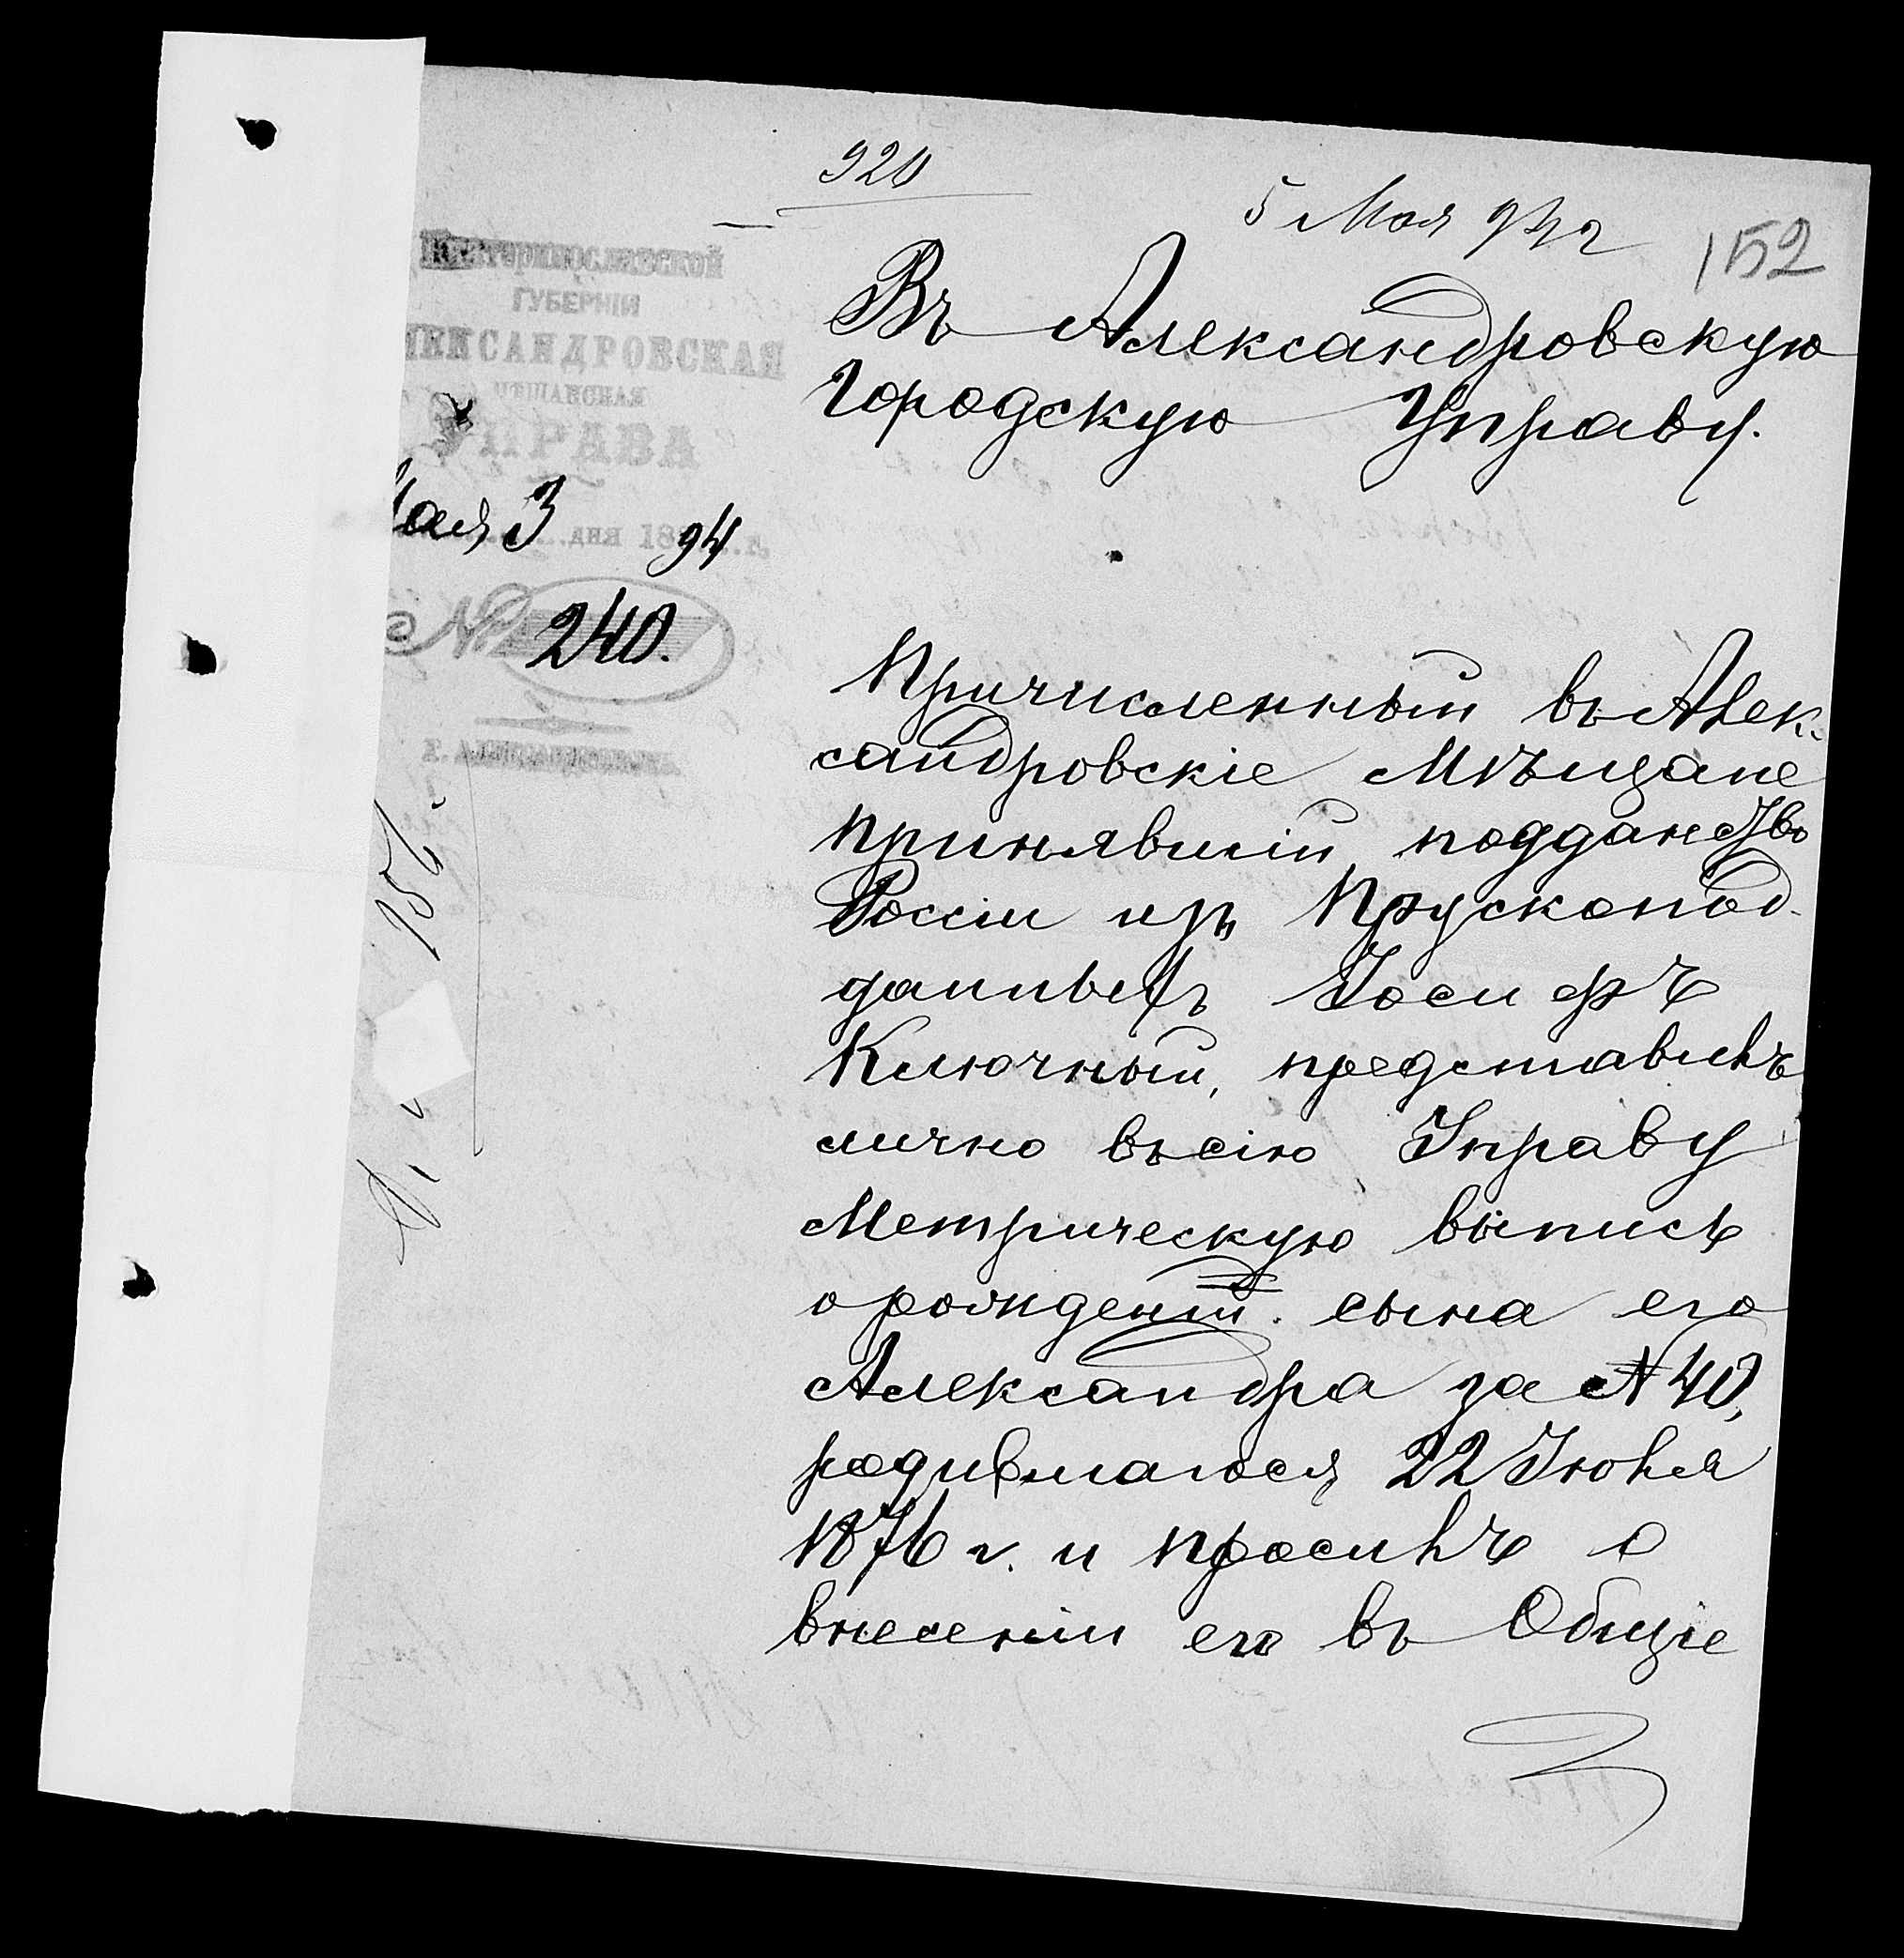 920
5 Мая 94 г
152
Екатеринославской
ГУБЕРНІИ
АЛЕКСАНДРОВСКАЯ
МѢЩАНСКАЯ
УПРАВА
Мая 3
дня 18 94 г.
№ 240.
Г. АЛЕКСАНДРОВСКЪ.
Въ Александровскую
Городскую Управу.
Причисленный въ Алек-
сандровскіе Мѣщане
принявшій подданство
Россіи изъ Прусскопод-
Іосифъ
Ключный, представилъ
лично въ сію Управу
Метрическую выпись
о рожденіи сына его
Александра за № 40,
родившагося 22 Іюля
1876 г. и проситъ о
внесеніи его въ Общіе